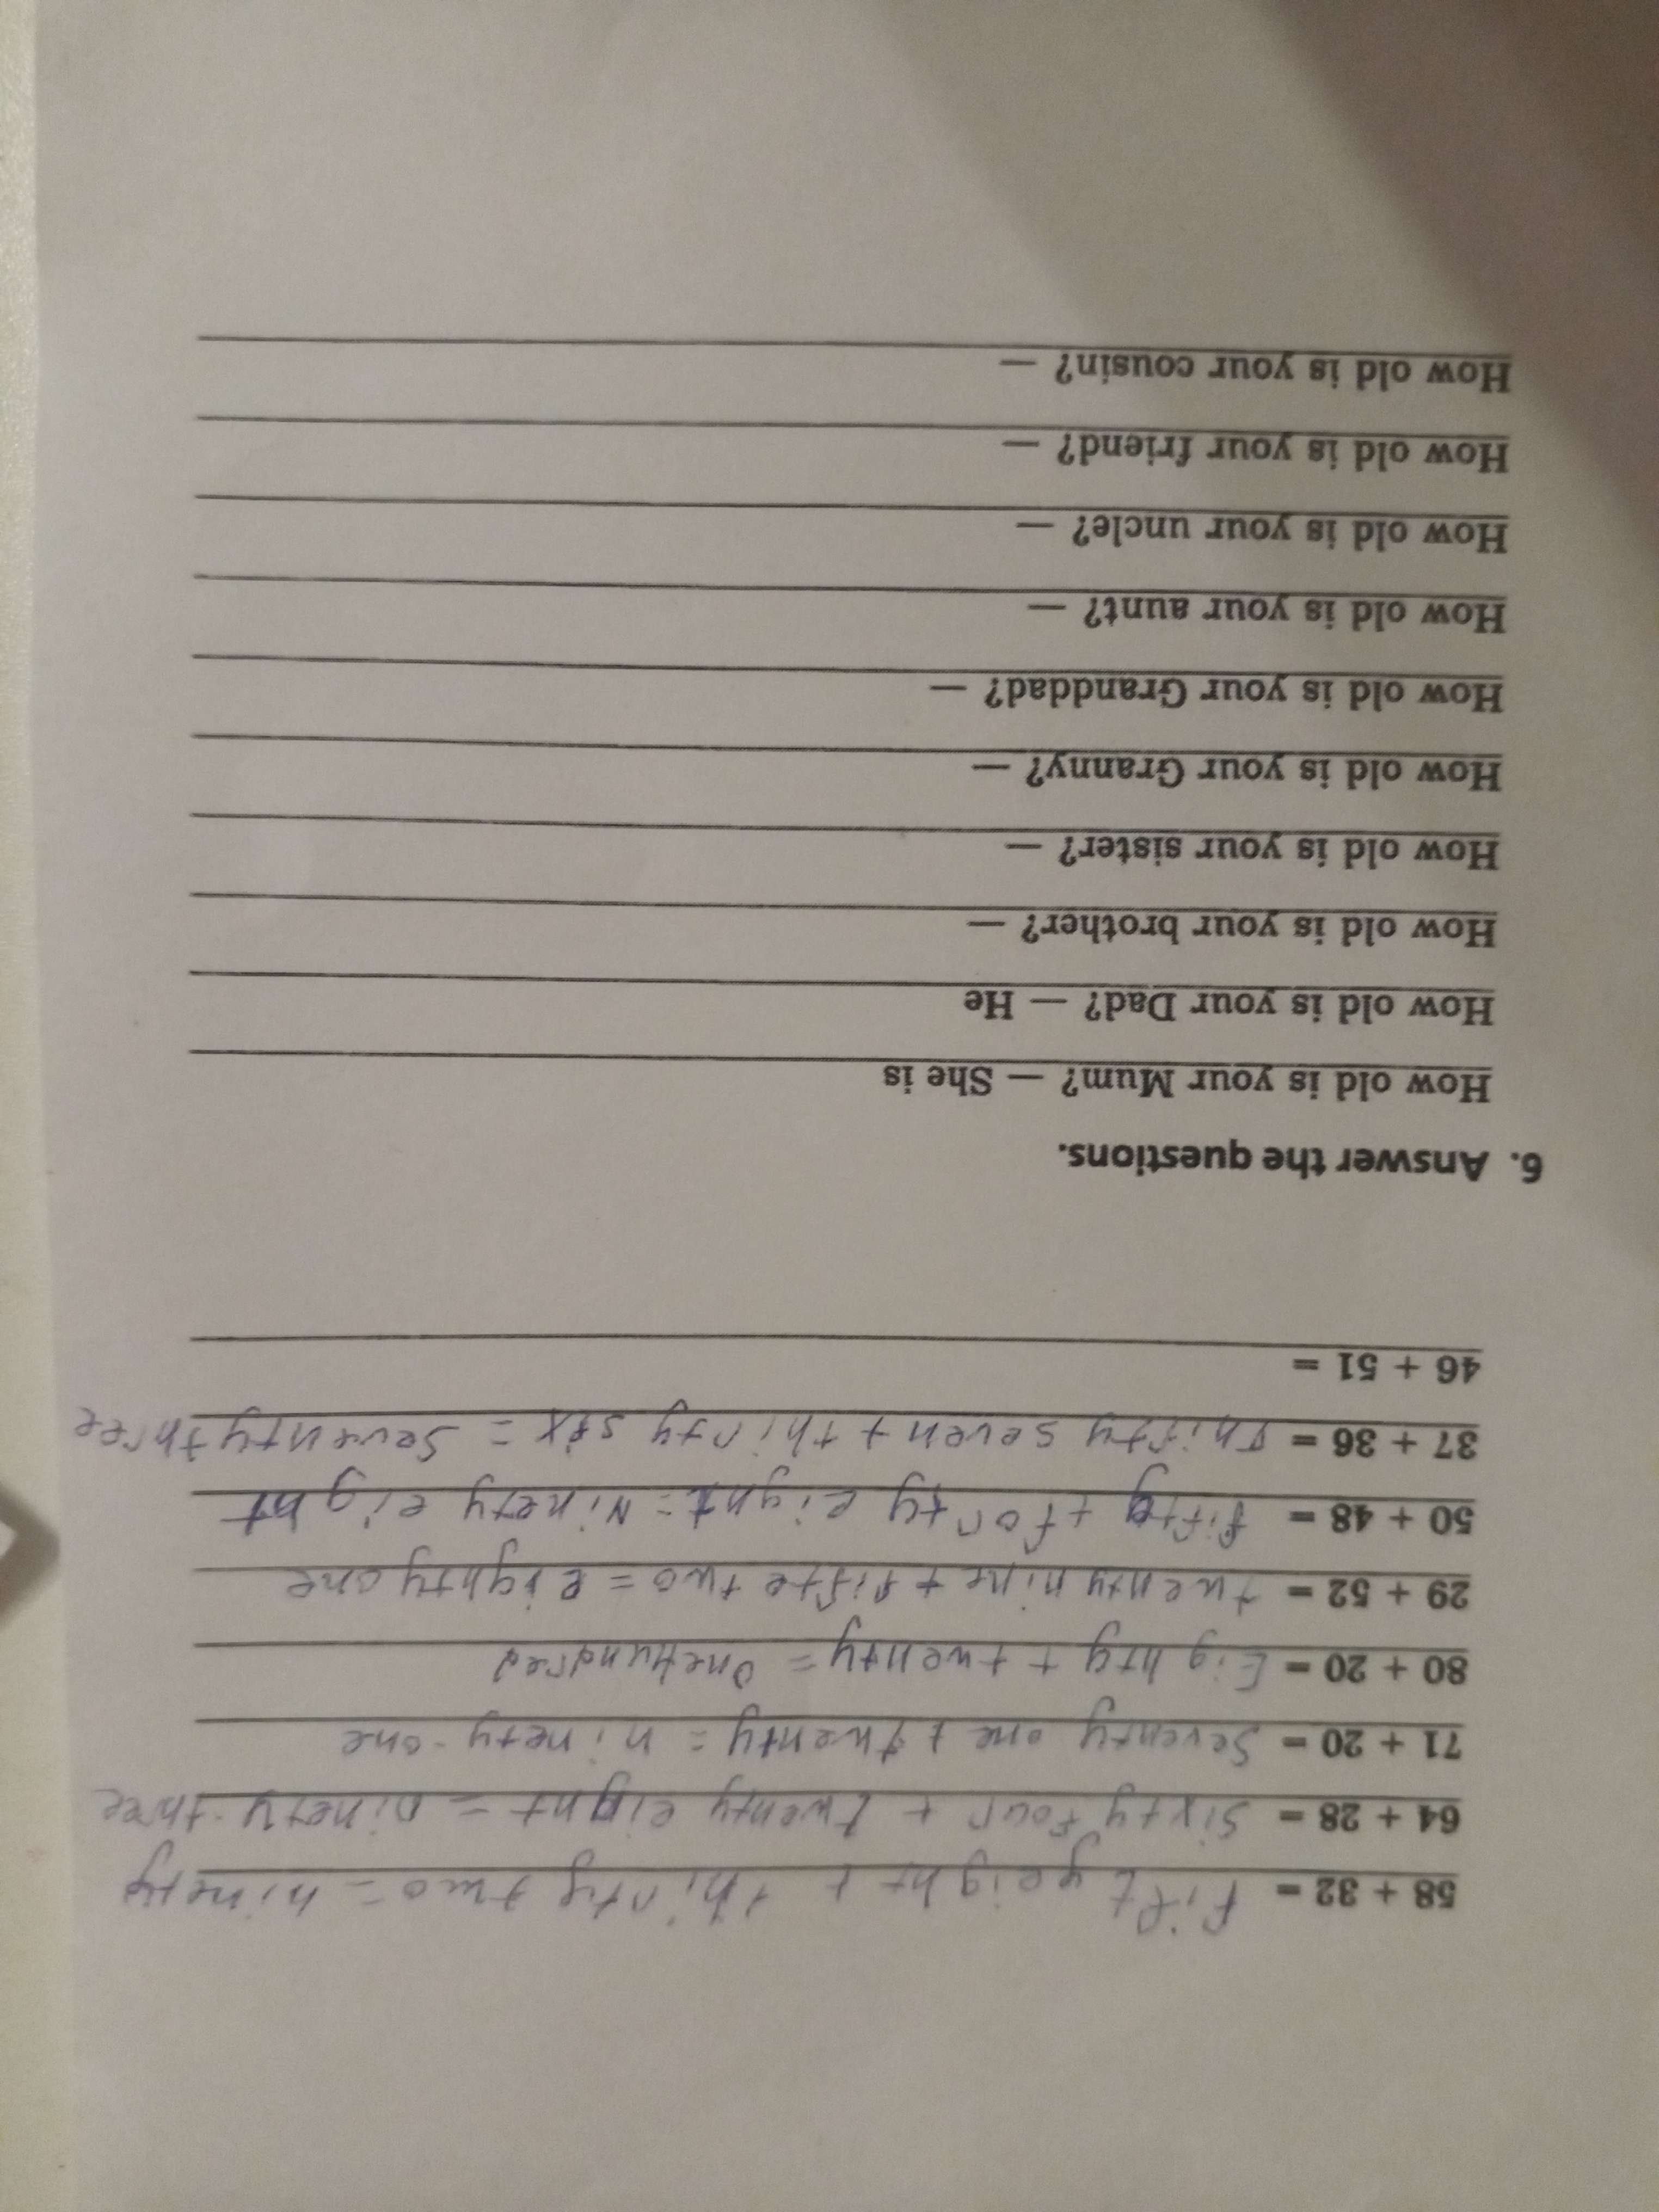 58 + 32 = fifty eight + thirty two = ninety
64 + 28 = Sixty four + twenty eight = ninety-three
71 + 20 = Seventy one + twenty = ninety-one
80 + 20 = Eighty + twenty = oneHundred
29 + 52 = twenty nine + fifte two = eighty one
50 + 48 = fifty + forty eight = Ninety eight
37 + 36 = Thirty seven + thirty six = Seventy three
46 + 51 =
6. Answer the questions.
How old is your Mum? — She is
How old is your Dad? — He
How old is your brother? —
How old is your sister? —
How old is your Granny? —
How old is your Granddad? —
How old is your aunt? —
How old is your uncle? —
How old is your friend? —
How old is your cousin? —